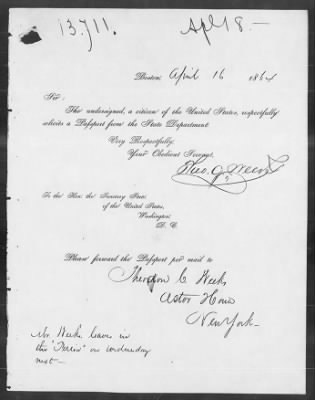 13.711.
Apl 18.—
Boston: April 16 1864
Sir:
The undersigned, a citizen of the United States, respectfully
solicits a Passport from the State Department.
Very Respectfully,
Your Obedient Servant,
Weeks
To the Hon. the
of the United States,
Washington,
D. C.
Please forward the Passport per mail to
C Weeks
Astor House
New York—
Mr. Weeks leaves in
the on Wednesday
next—